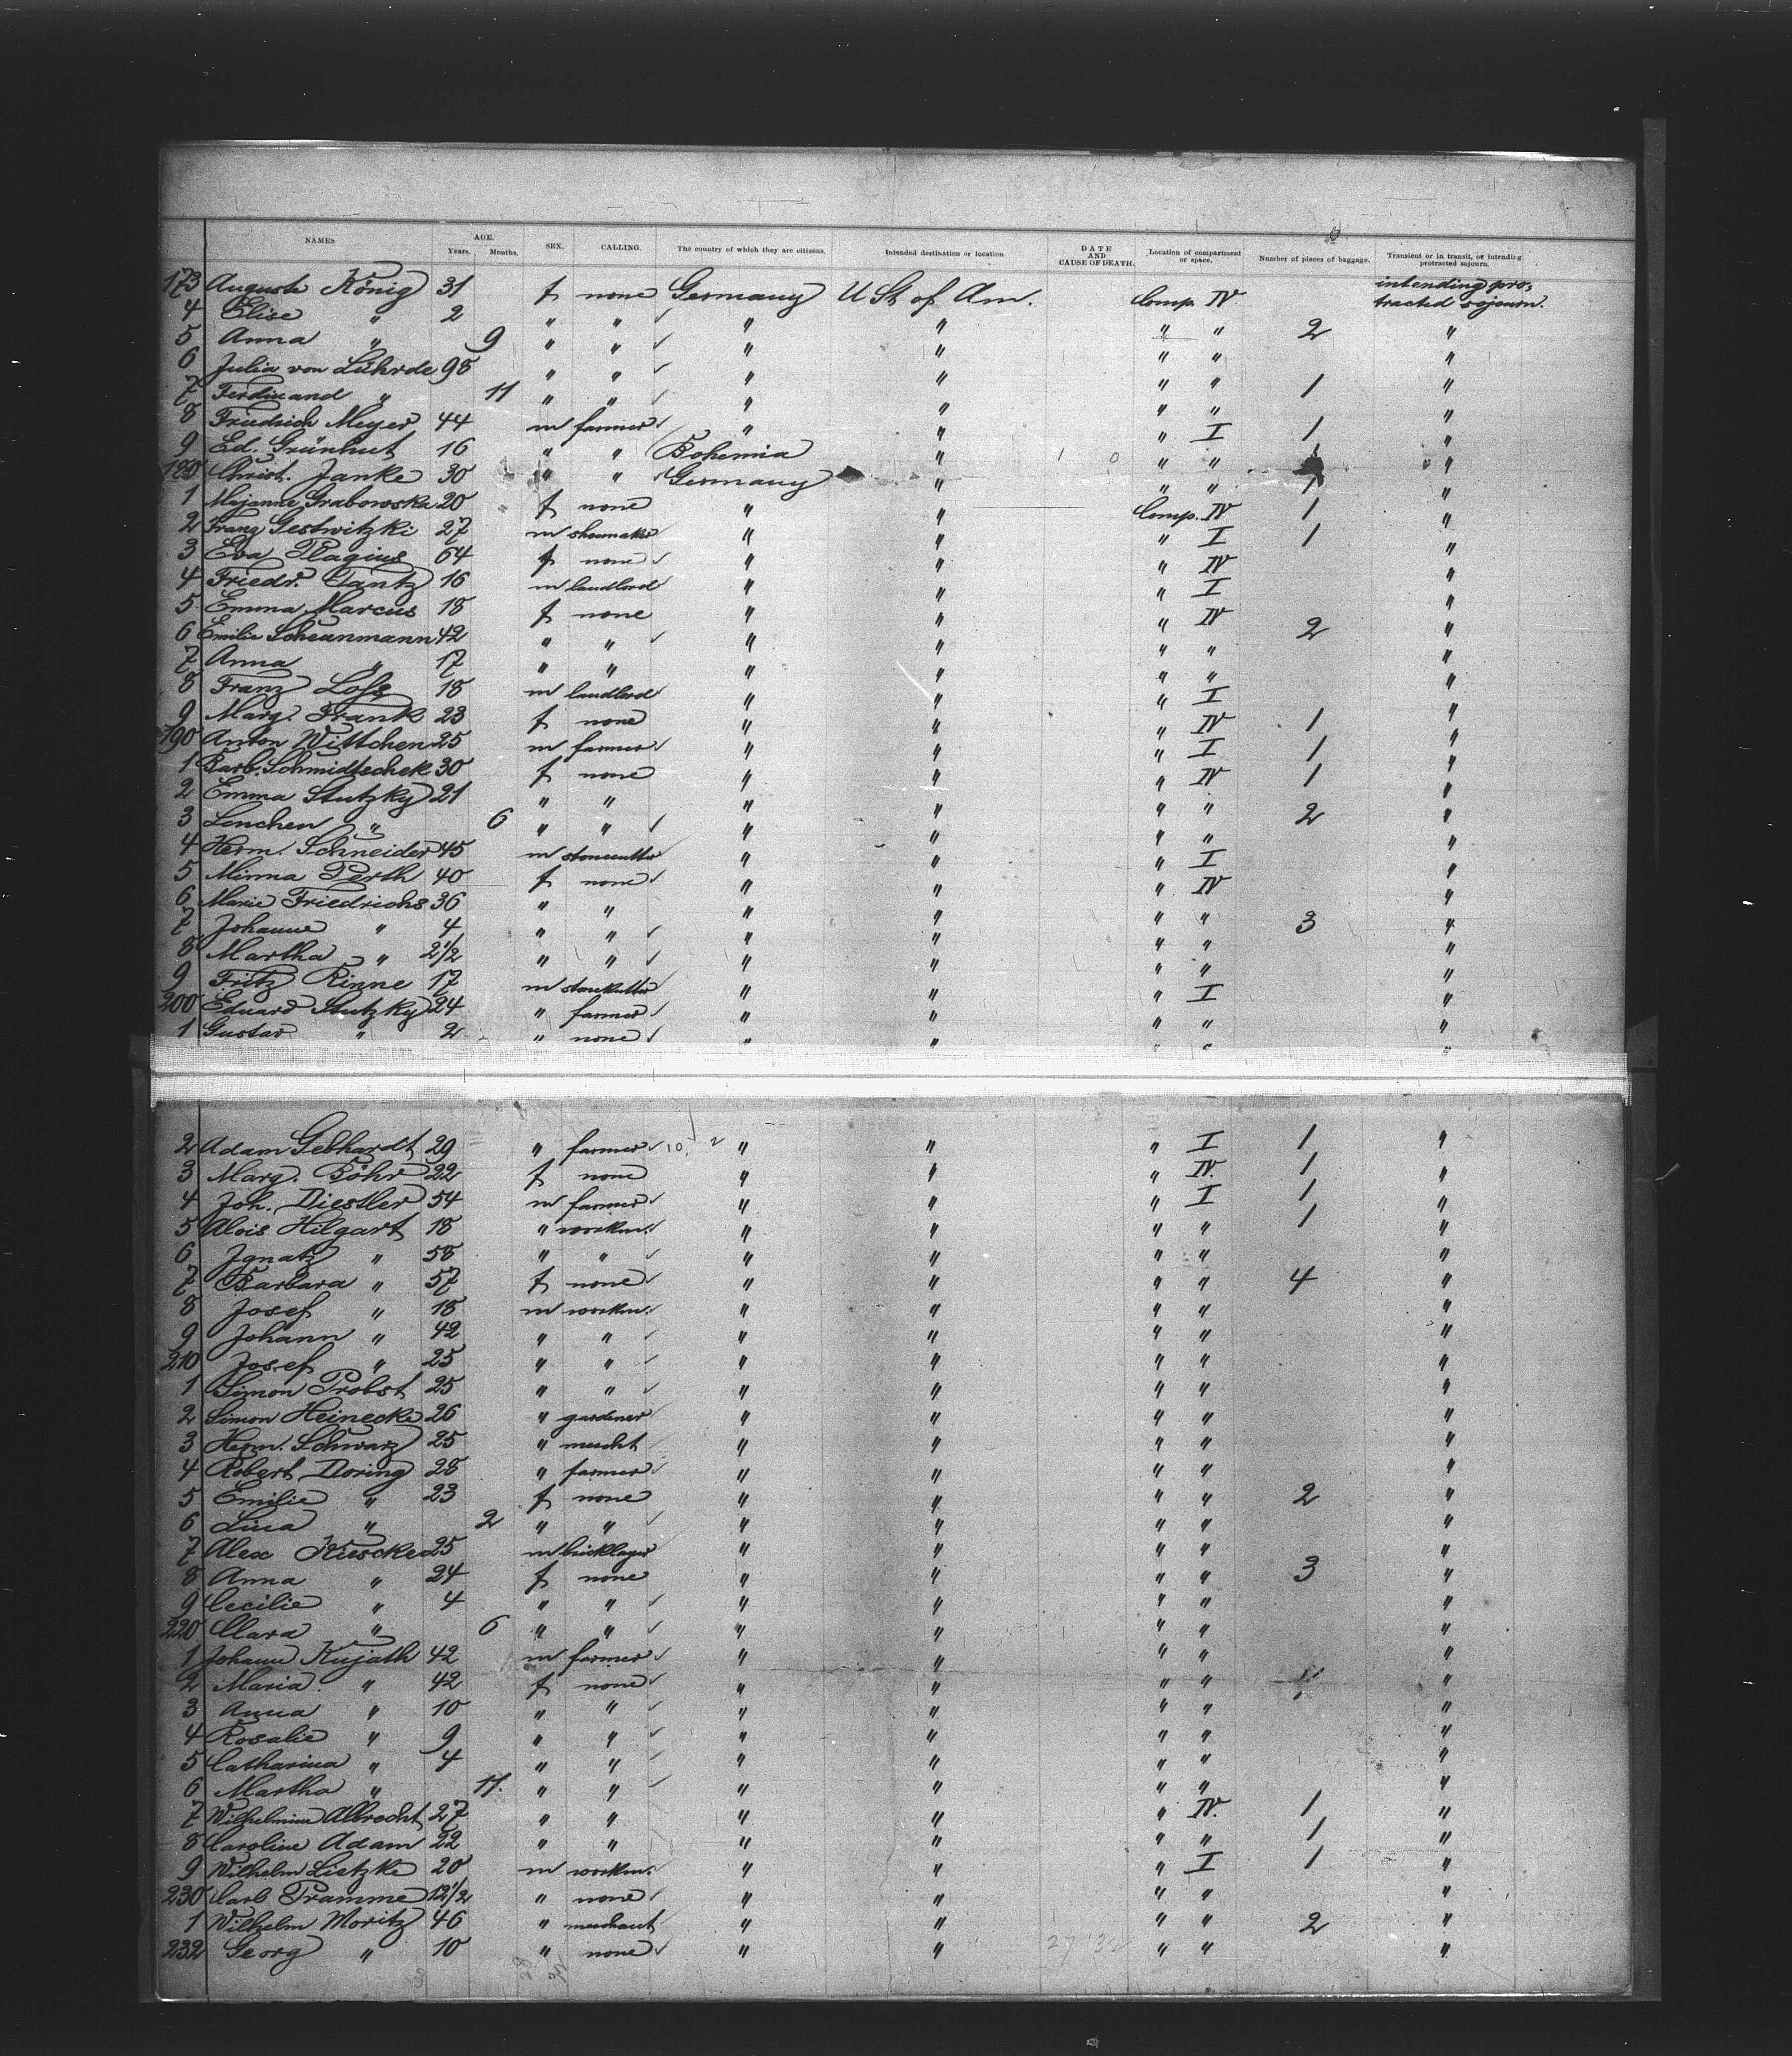 NAMES AGE. Years. Months. SEX. CALLING. The country of which they are citizens. Intended destination or location. DATE AND CAUSE OF DEATH. Location of compartment or space. Number of pieces of baggage. Transient or in transit, or intending protracted sojourn.
173 Auguste König 31 f none Germany U St of Am. Comp. IV intending protracted sojourn.
4 Elise " 2 " " " " " " 2 "
5 Anna " 9 " " " " " " "
6 Julia von Lührde 98 " " " " " " 1 "
7 Ferdinand " 11 " " " " " " "
8 Friedrich Meyer 44 m farmer " " " I 1 "
9 Ed. Grünhut 16 " " Bohemia " " " "
180 Christ. Janke 30 " " Germany " " " 1 "
1 Majanne Grabowska 20 f none " " Comp. IV 1 "
2 Franz Gestwitzki 27 m shoemaker " " " I 1 "
3 Eva Plagius 64 f none " " " IV "
4 Friedr. Tantz 16 m landlord " " " I "
5 Emma Marcus 18 f none " " " IV "
6 Emilie Scheunmann 42 " " " " " " 2 "
7 Anna " 17 " " " " " " "
8 Franz Loss 18 m landlord " " " I "
9 Marg. Frank 23 f none " " " IV 1 "
190 Anton Wittchen 25 m farmer " " " I 1 "
1 Barb. Schmidtschek 30 f none " " " IV 1 "
2 Emma Stutzky 21 " " " " " " 2 "
3 Lenchen " 6 " " " " " " "
4 Herm. Schneider 45 m stonecutter " " " I "
5 Minna Perth 40 f none " " " IV "
6 Marie Friedrichs 36 " " " " " " 3 "
7 Johanne " 4 " " " " " " "
8 Martha " 2 1/2 " " " " " " "
9 Fritz Rinne 17 m stonecutter " " " I "
200 Eduard Stutzky 24 " farmer " " " " "
1 Gustav " 2 " none " " " " "
2 Adam Gebhardt 29 " farmer " " " I 1 "
3 Marg. Böhr 22 f none " " " IV. 1 "
4 Joh. Diestler 54 m farmer " " " I 1 "
5 Alois Hilgart 18 " workm. " " " " 1 "
6 Ignatz " 58 " " " " " " "
7 Barbara " 57 f none " " " " 4 "
8 Josef " 18 m workm. " " " " "
9 Johann " 42 " " " " " " "
210 Josef " 25 " " " " " " "
1 Simon Probst 25 " " " " " " "
2 Simon Heinecke 26 " gardener " " " " "
3 Herm. Schwarz 25 " mercht " " " " "
4 Robert Doring 28 " farmer " " " " "
5 Emilie " 23 f none " " " " 2 "
6 Lina " 2 " " " " " " "
7 Alex Kiescke 25 m bricklayer " " " " "
8 Anna " 24 f none " " " " 3 "
9 Cecilie " 4 " " " " " " "
220 Clara " 6 " " " " " " "
1 Johann Kujath 42 m farmer " " " " "
2 Maria " 42 f none " " " " "
3 Anna " 10 " " " " " " "
4 Rosalie " 9 " " " " " " "
5 Catharina " 4 " " " " " " "
6 Martha " 11. " " " " " " "
7 Wilhelmine Albrecht 27 " " " " " IV. 1 "
8 Caroline Adam 22 " " " " " " 1 "
9 Wilhelm Lietzke 20 m workm. " " " I 1 "
230 Carl Pramme 12 1/2 " none " " " " "
1 Wilhelm Moritz 46 " merchant " " " " 2 "
232 Georg " 10 " none " " " " "